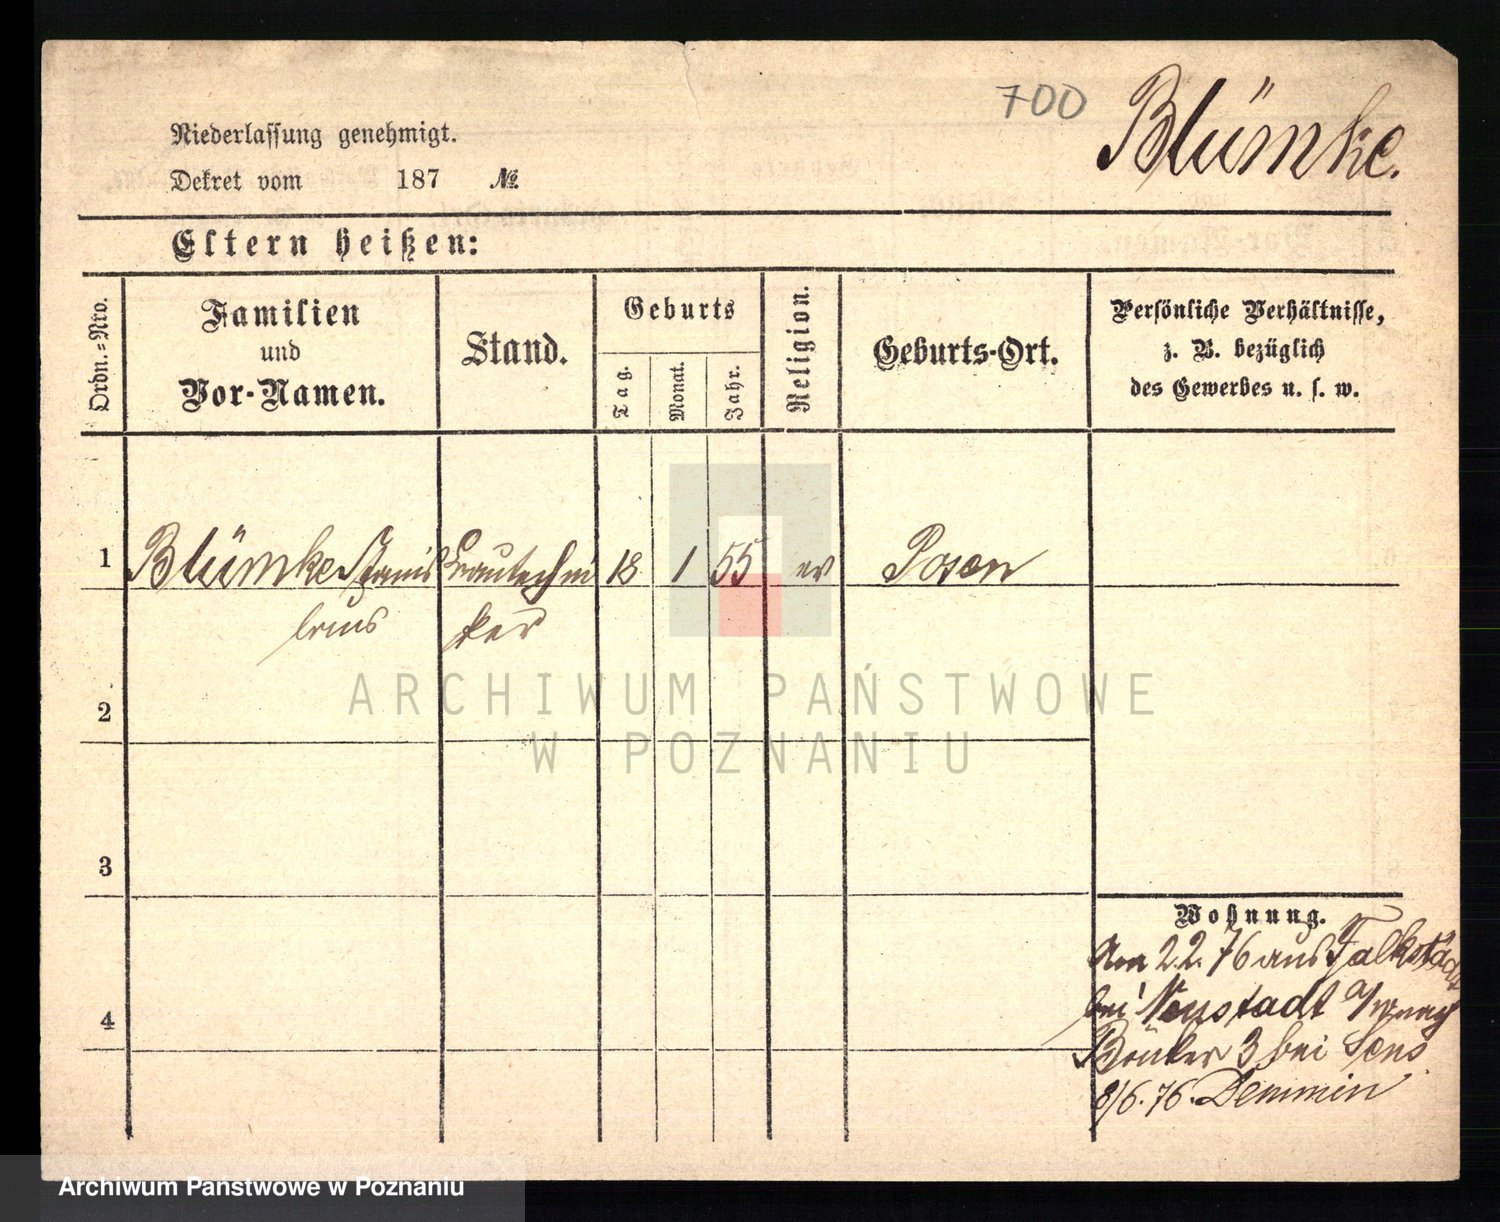 700 Blümke.
Niederlassung genehmigt.
Dekret vom 187 №
Eltern heißen:
Ordn.=Nro.
Familien
und
Vor-Namen.
Stand.
Geburts
Tag.
Monat.
Jahr.
Religion.
Geburts-Ort.
Persönliche Verhältnisse,
z. B. bezüglich
des Gewerbes u. s. w.
1 Blümke Stanis 18 1 55 ev Posen
laus ker
2
ARCHIWUM PAŃSTWOWE
W POZNANIU
3
4
Wohnung.
2.2.76 aus Falkstädt
bei Neustadt
3 bei
8/6.76. Demmin
Archiwum Państwowe w Poznaniu